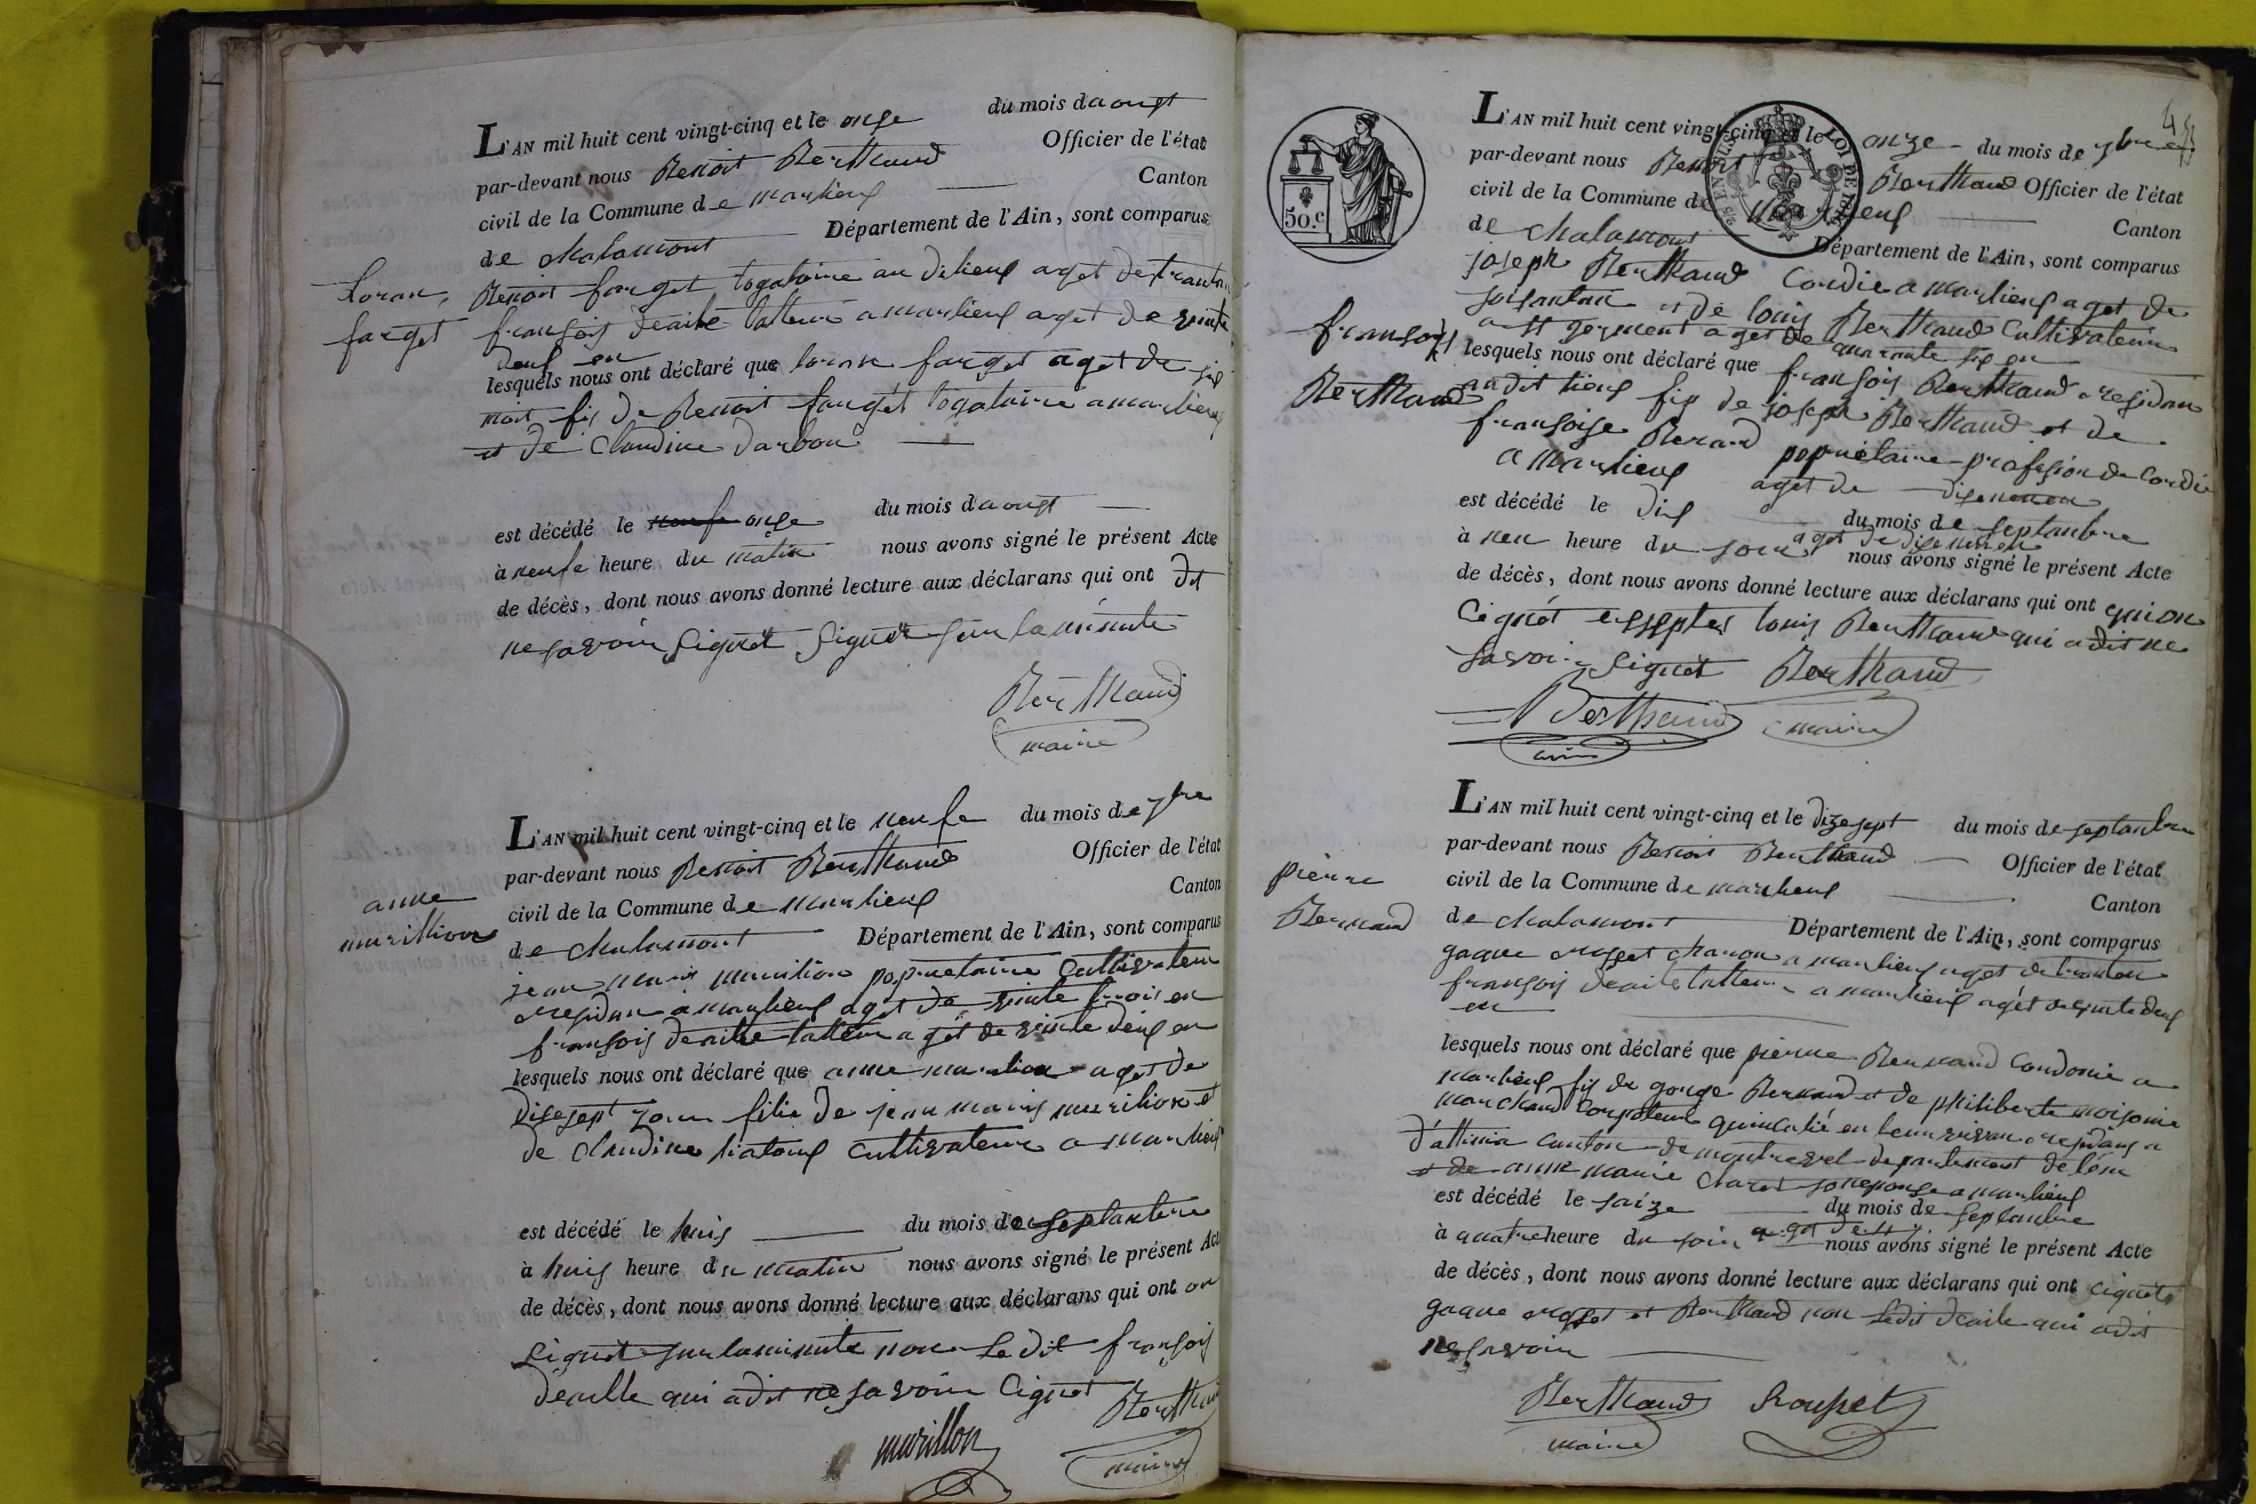 L'AN mil huit cent vingt-cinq et le onze du mois daoust
par-devant nous Benoit Berthaud Officier de l'état
civil de la Commune de marlieux Canton
de chalamont Département de l'Ain, sont comparus
Loran
farget
Benoit farget au dilieux aget de
françois deaile a marlieux aget de vinte
deux en
lesquels nous ont déclaré que loran farget aget de six
mois fis de Benoit farget a marlieux
et de Claudine darbon
est décédé le onze du mois daoust
à neufe heure du matin nous avons signé le présent Acte
de décès, dont nous avons donné lecture aux déclarans qui ont dit
ne savoir signet signet sur la minute
Berthaud
maire
L'AN mil huit cent vingt-cinq et le neufe du mois de 7bre
par-devant nous Benoit Berthaud Officier de l'état
civil de la Commune de marlieux Canton
de chalamont Département de l'Ain, sont comparus
anne
murillion
jean maris murilion poprietaire Cultivateur
residan a marlieux aget de vinte trois en
françois deaille aget de vinte deux en
lesquels nous ont déclaré que anne aget de
disesept jour filie de jean maris murilion et
de Claudine Cultivateur a marlieux
est décédé le huis du mois de septanbre
à huis heure du matin nous avons signé le présent Acte
de décès, dont nous avons donné lecture aux déclarans qui ont on
signet sur la minute non le dit françois
deaille qui a dit ne savoir signet Berthaud
murillon maire
L'AN mil huit cent vingt-cinq et le onze du mois de 7bre
par-devant nous Benoit Berthaud Officier de l'état
civil de la Commune de marlieux Canton
de chalamont Département de l'Ain, sont comparus
50.c
LOI DE
françois
Berthaud
joseph Berthaud Cordie a marlieux aget de
soisantan et de louis Berthaud Cultivateur
a st germent aget de quarante six en
lesquels nous ont déclaré que françois Berthaud residan
audit lieux fis de joseph Berthaud et de
françoise Berard popriétaire profesion de Cordie
a marlieux aget de
est décédé le dix du mois de septanbre
à neu heure du soir aget de nous avons signé le présent Acte
de décès, dont nous avons donné lecture aux déclarans qui ont qui on
signet louis Berthaud qui a dit ne
savoir signet Berthaud
Berthaud maire
L'AN mil huit cent vingt-cinq et le dizesept du mois de septanbre
par-devant nous Benoit Berthaud Officier de l'état
civil de la Commune de marlieux Canton
de chalamont Département de l'Ain, sont comparus
pierre
Bernard
gaque charon a marlieux aget de
françois deaile a marlieux aget de vinte deux
en
lesquels nous ont déclaré que pierre Bernard Cordonie a
marlieux fis de Bernard et de philiberte
marchand en leur vivan residans a
d'attinia canton de montrevel departement de l'ein
et de anne marie son epouse a marlieux
est décédé le saize du mois de septanbre
à quatre heure du soir aget de nous avons signé le présent Acte
de décès, dont nous avons donné lecture aux déclarans qui ont signet
gaque et Berthaud non ledit deaile qui a dit
ne savoir
Berthaud Rousset
maire